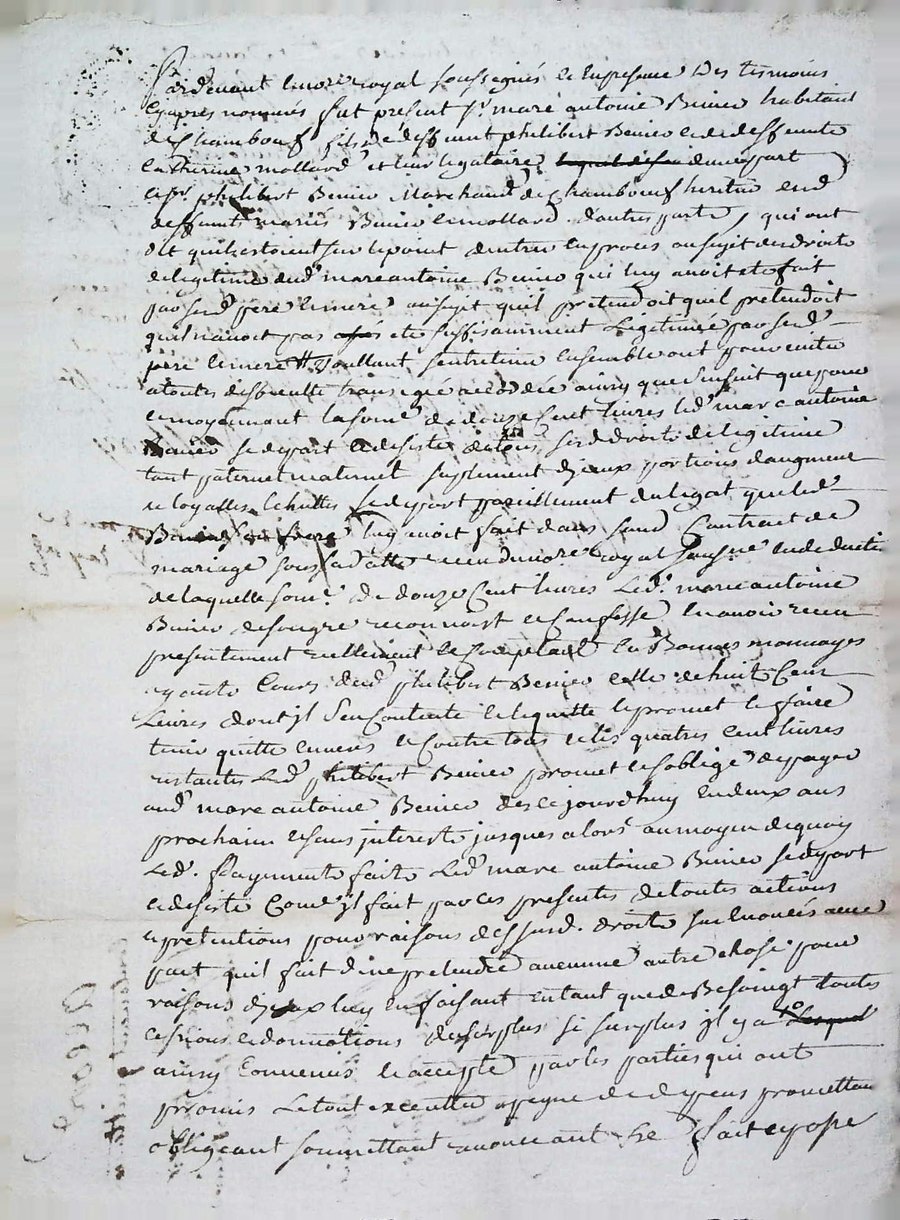 Pardevant le nore royal soussigné et en presence des tesmoins
cy apres nommés fut present sr marc antoine Benier habitant
de chambœuf fils de deffunt philibert Benier et de deffunte
catherine mollard et leur legataire dune part
et sr philibert Benier Marchand de Chambœuf heritier esd
deffunts mariés Benier et mollard dautre part, qui ont
dit quils estoient sur le point dentrer en proces au sujet des droits
de legitime dud marc antoine Benier qui luy avoit eté fait
par sesd pere et mere au sujet quil pretendoit quil pretendoit
quil navoit pas eté suffisamment legitimé par sesd
pere et mere voullant sentretenir ensemble ont pour eviter
a toutes difficulté transigé accordé ainsy que sensuit que pour
et moyennant la some de douze Cent livres led marc antoine
Benier se depart et desiste de tous sesd droits de legitime
tant paternel maternel suplement diceux portions daugment
et loyalles echuttes se depart pareillement du legat que led
Benier luy avoit fait dans son Contract de
mariage sous sa datte receu du nore royal sousigné en deduction
de laquelle some de douze Cent livres led. marc antoine
Benier de son gre reconnoist et Confesse en avoir receu
presentement reellement et Comptant en Bonnes monnoyes
ayants Cours dud philibert Benier celle de huit Cent
Livres dont jl sen Contente et le quitte et promet le faire
tenir quitte envers et Contre tous et les quatres cent livres
restantes led philibert Benier promet et soblige de payer
aud marc antoine Benier des ce jourdhuy en deux ans
prochain et sans jnterests jusques alors au moyen de quoy
Led. Payements faits Led marc antoine Benier se depart
et desiste Come jl fait par ces presentes de toutes actions
et pretentions pour raisons des susd. droits sus enoncés avec
pact quil fait dine pretendre aucunne autre chose pour
raisons diceux luy en faisant en tant que de Besoingt toutes
cessions et donnations de surplus si surplus jl y a
ainsy Convenus et accepté par les parties qui ont
promis le tout executter a peyne de depens promettan
obligeant soumettant renonceant &c fait et passé